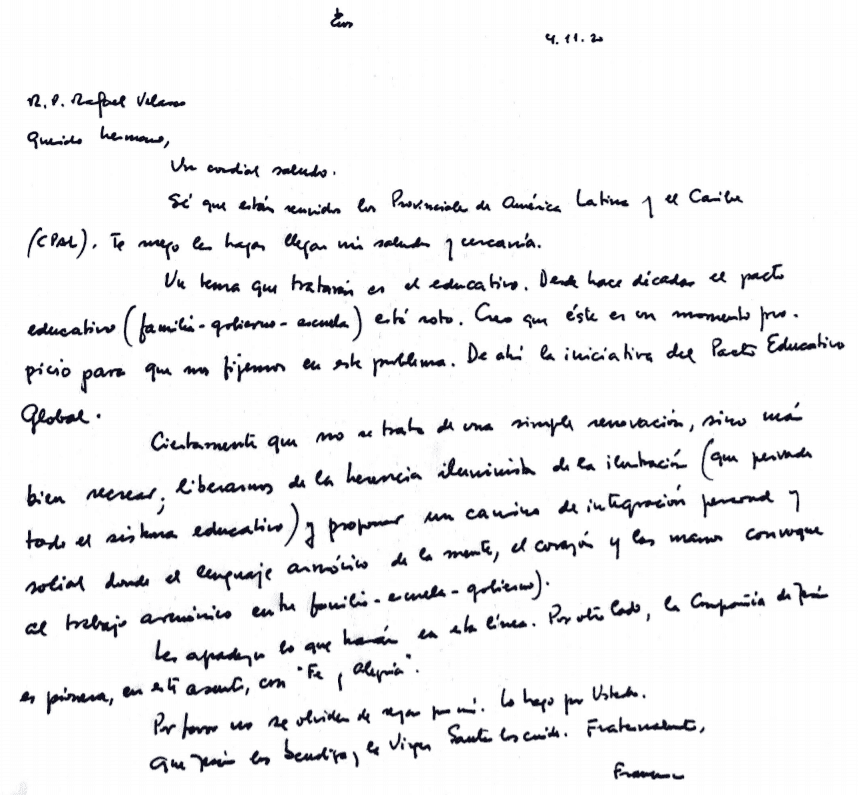 4.11.20
R.P. Rafael Velasco
Querido hermano,
Un cordial saludo.
Sé que están reunidos los Provinciales de América Latina y el Caribe
(CPAL). Te ruego les hagas llegar mi saludo y cercanía.
Un tema que tratarán es el educativo. Desde hace décadas el pacto
educativo (familia-gobierno-escuela) está roto. Creo que éste es un momento pro-
picio para que nos fijemos en este problema. De ahí la iniciativa del Pacto Educativo
Global.
Ciertamente que no se trata de una simple renovación, sino más
bien recrear; liberarnos de la herencia iluminista de la ilustración (que pervade
todo el sistema educativo) y proponer un camino de integración personal y
social donde el lenguaje armónico de la mente, el corazón y las manos convoque
al trabajo armónico entre familia-escuela-gobierno).
Les agradezco lo que harán en esta línea. Por otro lado, la Compañía de Jesús
es pionera, en este asunto, con "Fe y Alegría".
Por favor no se olviden de rezar por mí. Lo hago por Ustedes.
Que Jesús los bendiga y la Virgen Santa los cuide. Fraternalmente,
Francisco